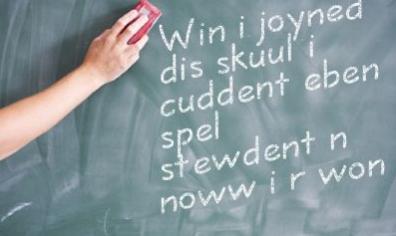 Win i joyned
dis skuul i
cuddent eben
spel
stewdent n
noww i r won